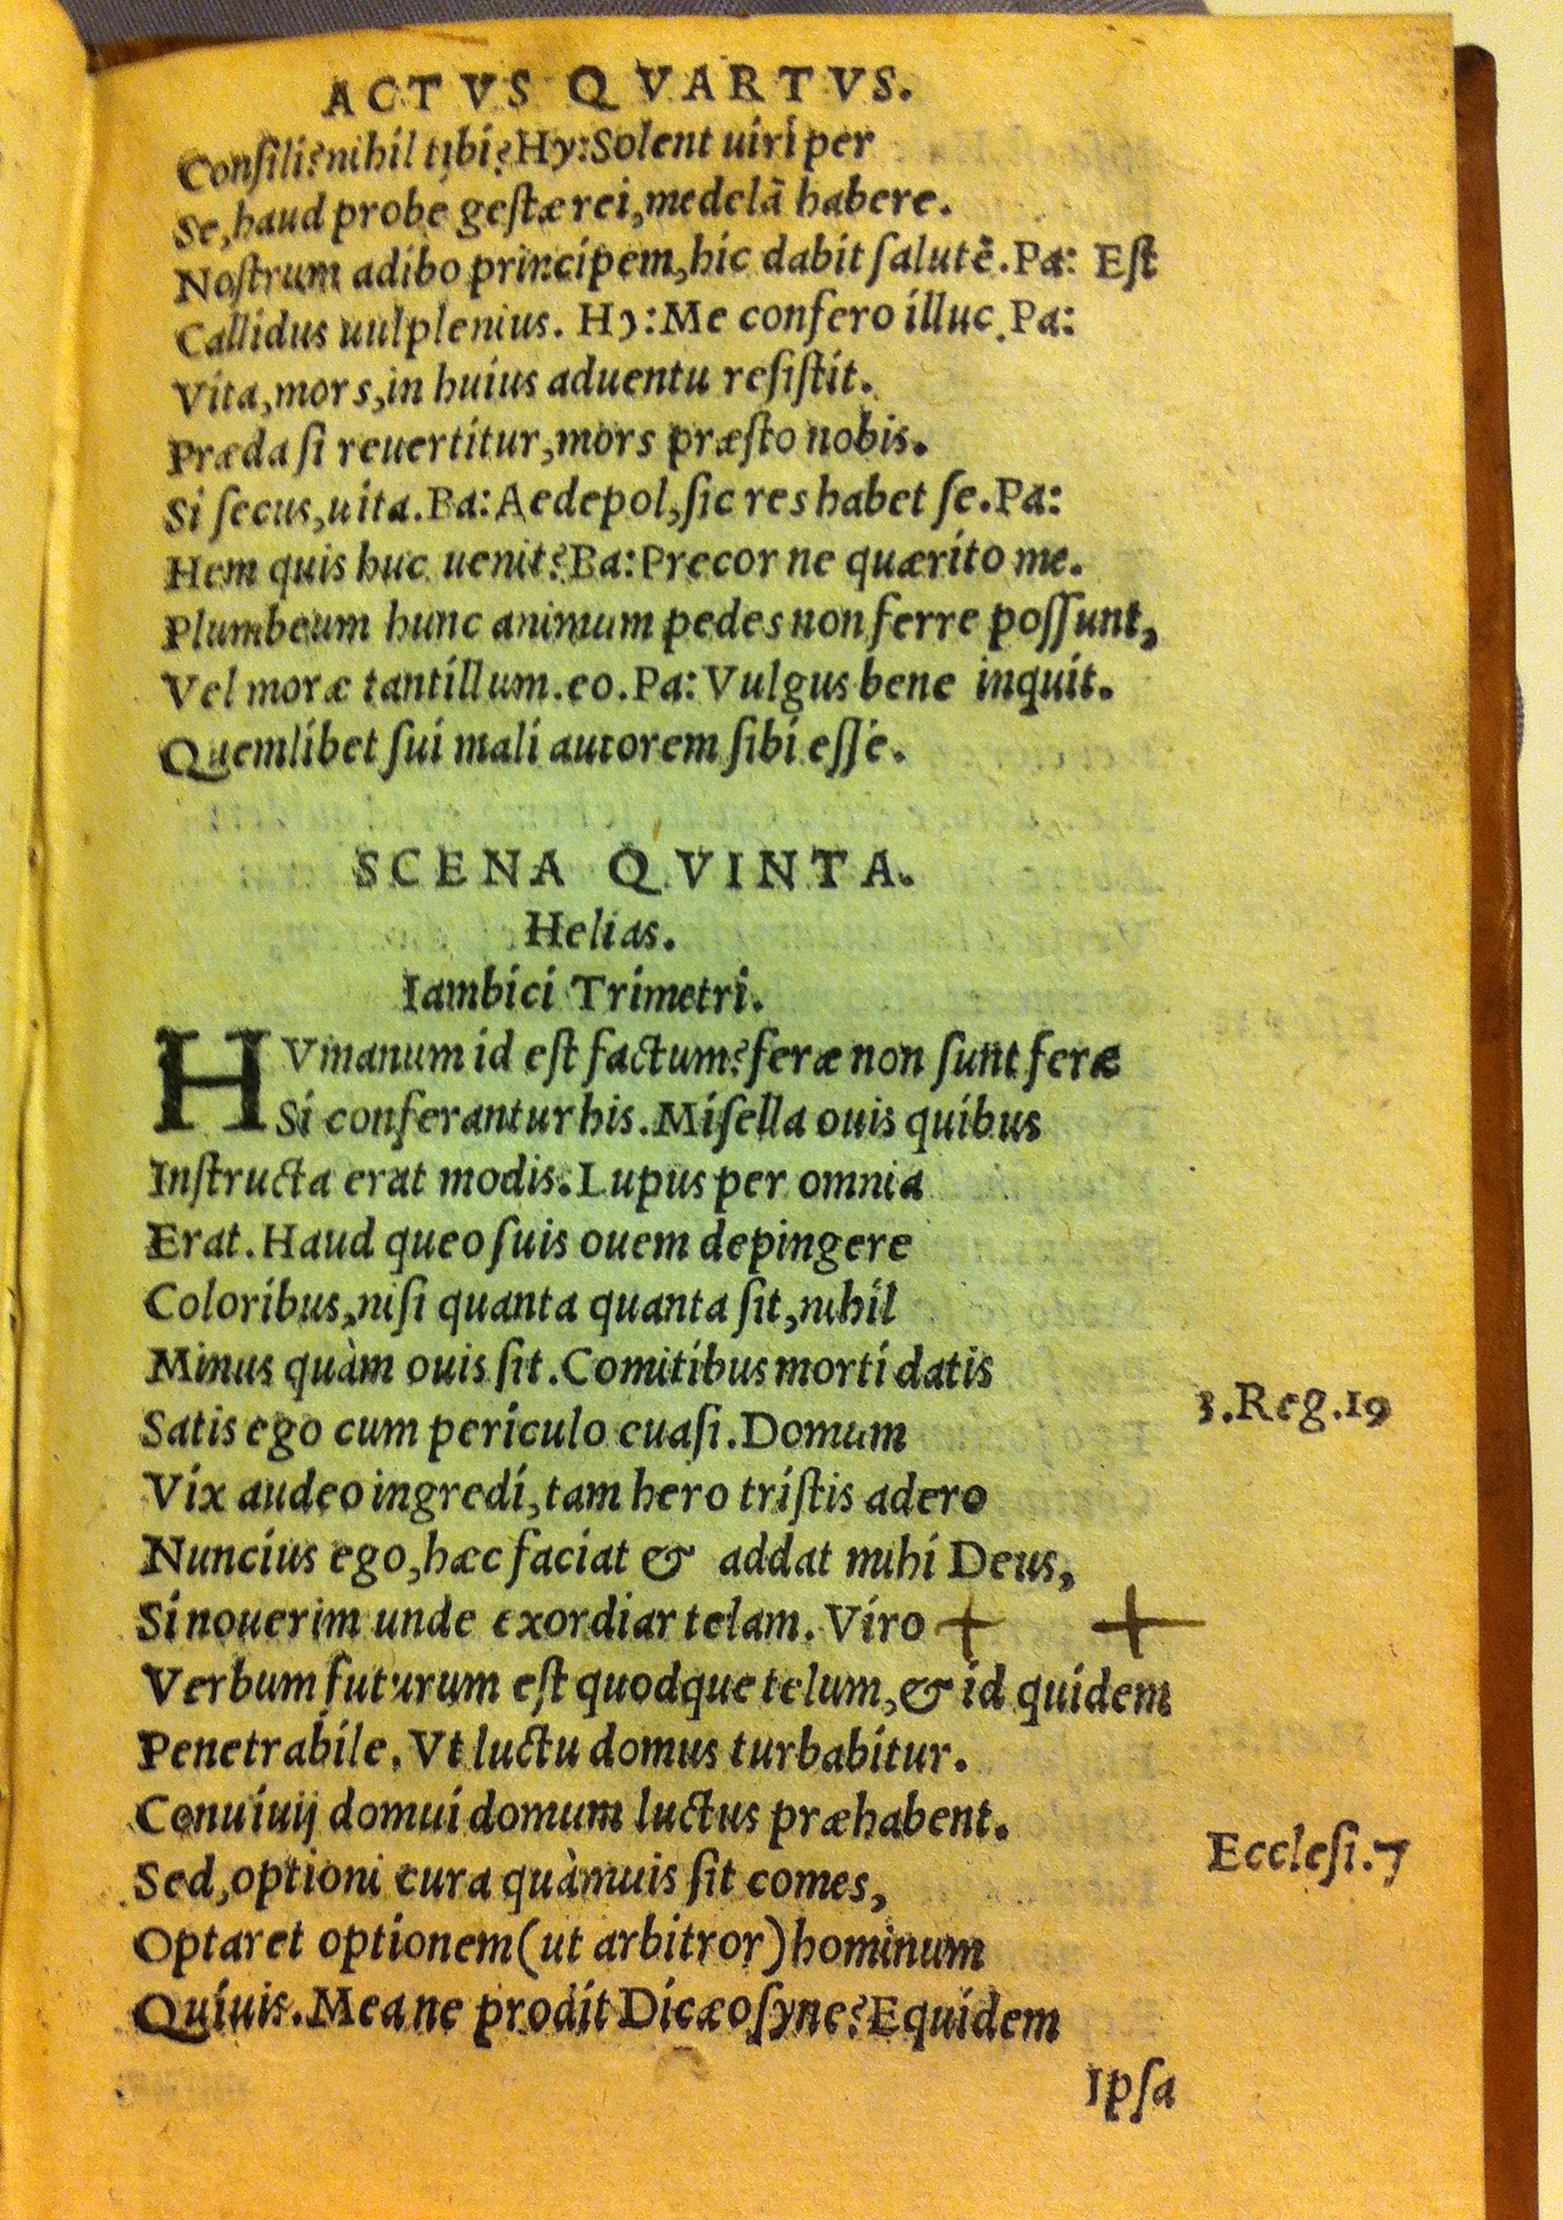 ACTVS QVARTVS.
Consili?nihil tibi?Hy:Solent uiri per
Se,haud probè gestæ rei,medelā habere.
Nostrum adibo principem,hic dabit salutē.Pa: Est
Callidus uulplenius. Hy:Me confero illuc.Pa:
Vita,mors,in huius aduentu resistit.
Præda si reuertitur,mors præsto nobis.
Si secus,uita.Ba:Aedepol,sic res habet se.Pa:
Hem quis huc uenit?Ba:Precor ne quærito me.
Plumbeum hunc animum pedes non ferre possunt,
Vel moræ tantillum.eo.Pa:Vulgus bene inquit.
Quemlibet sui mali autorem sibi esse.
SCENA QVINTA.
Helias.
Iambici Trimetri.
HVmanum id est factum?feræ non sunt feræ
Si conferantur his.Misella ouis quibus
Instructa erat modis.Lupus per omnia
Erat.Haud queo suis ouem depingere
Coloribus,nisi quanta quanta sit,nihil
Minus quàm ouis sit.Comitibus morti datis
Satis ego cum periculo euasi.Domum
3.Reg.19
Vix audeo ingredi,tam hero tristis adero
Nuncius ego,hæc faciat & addat mihi Deus,
Si nouerim unde exordiar telam.Viro + +
Verbum futurum est quodque telum,& id quidem
Penetrabile.Vt luctu domus turbabitur.
Conuiuij domui domum luctus præhabent.
Ecclesi.7
Sed,optioni cura quàmuis sit comes,
Optaret optionem(ut arbitror)hominum
Quiuis.Meane prodit Dicæosyne?Equidem
Ipsa